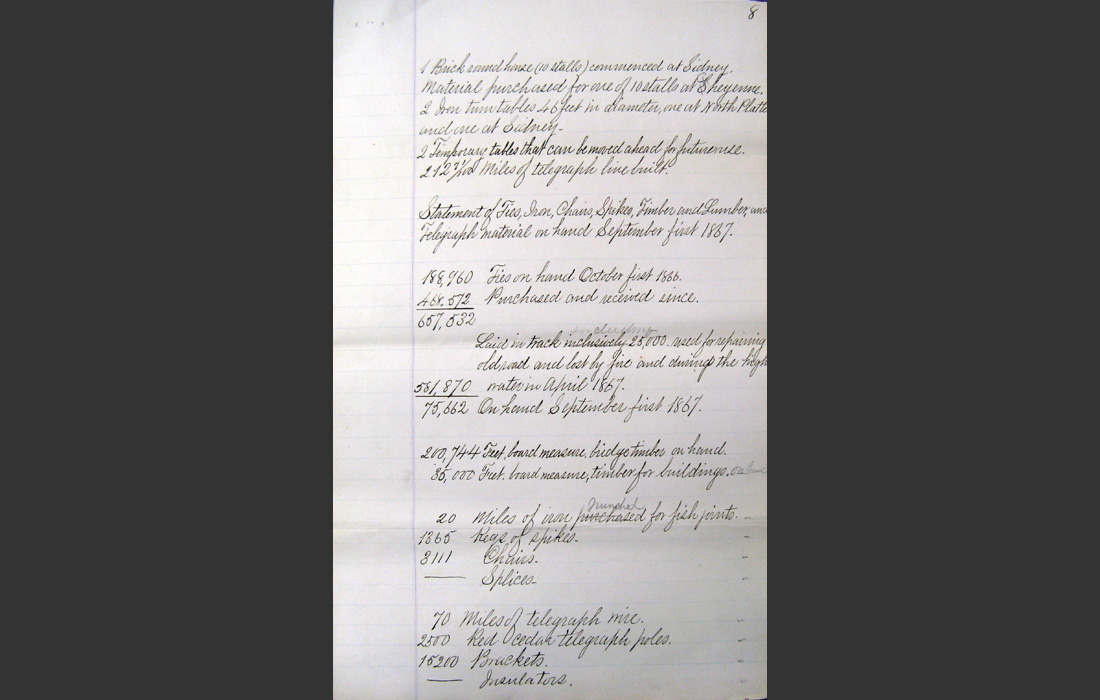 8
1 Brick round house (10 stalls) commenced at Sidney.
Material purchased for one of 10 stalls at Cheyenne.
2 Iron turn tables 46 feet in diameter, one at North Platte
and one at Sidney.
2 Temporary tables that can be moved ahead for future use.
212 Miles of telegraph line built.
Statement of Ties, Iron, Chairs, Spikes, Timber and Lumber, and
Telegraph material on hand September first 1867.
188,960 Ties on hand October first 1866.
468,572 Purchased and received since.
657,532
including
Laid in track inclusively 25,000 used for repairing
old road and lost by fire and during the high
581,870 water in April 1867.
75,662 On hand September first 1867.
200,744 Feet, board measure, bridge timber on hand.
35,000 Feet. board measure, timber for buildings. on hand
punched
20 Miles of iron purchased for fish joints.
1365 Kegs of spikes.
3111 Chairs.
—— Splices.
70 Miles of telegraph wire.
2500 Red cedar telegraph poles.
15200 Brackets.
—— Insulators.